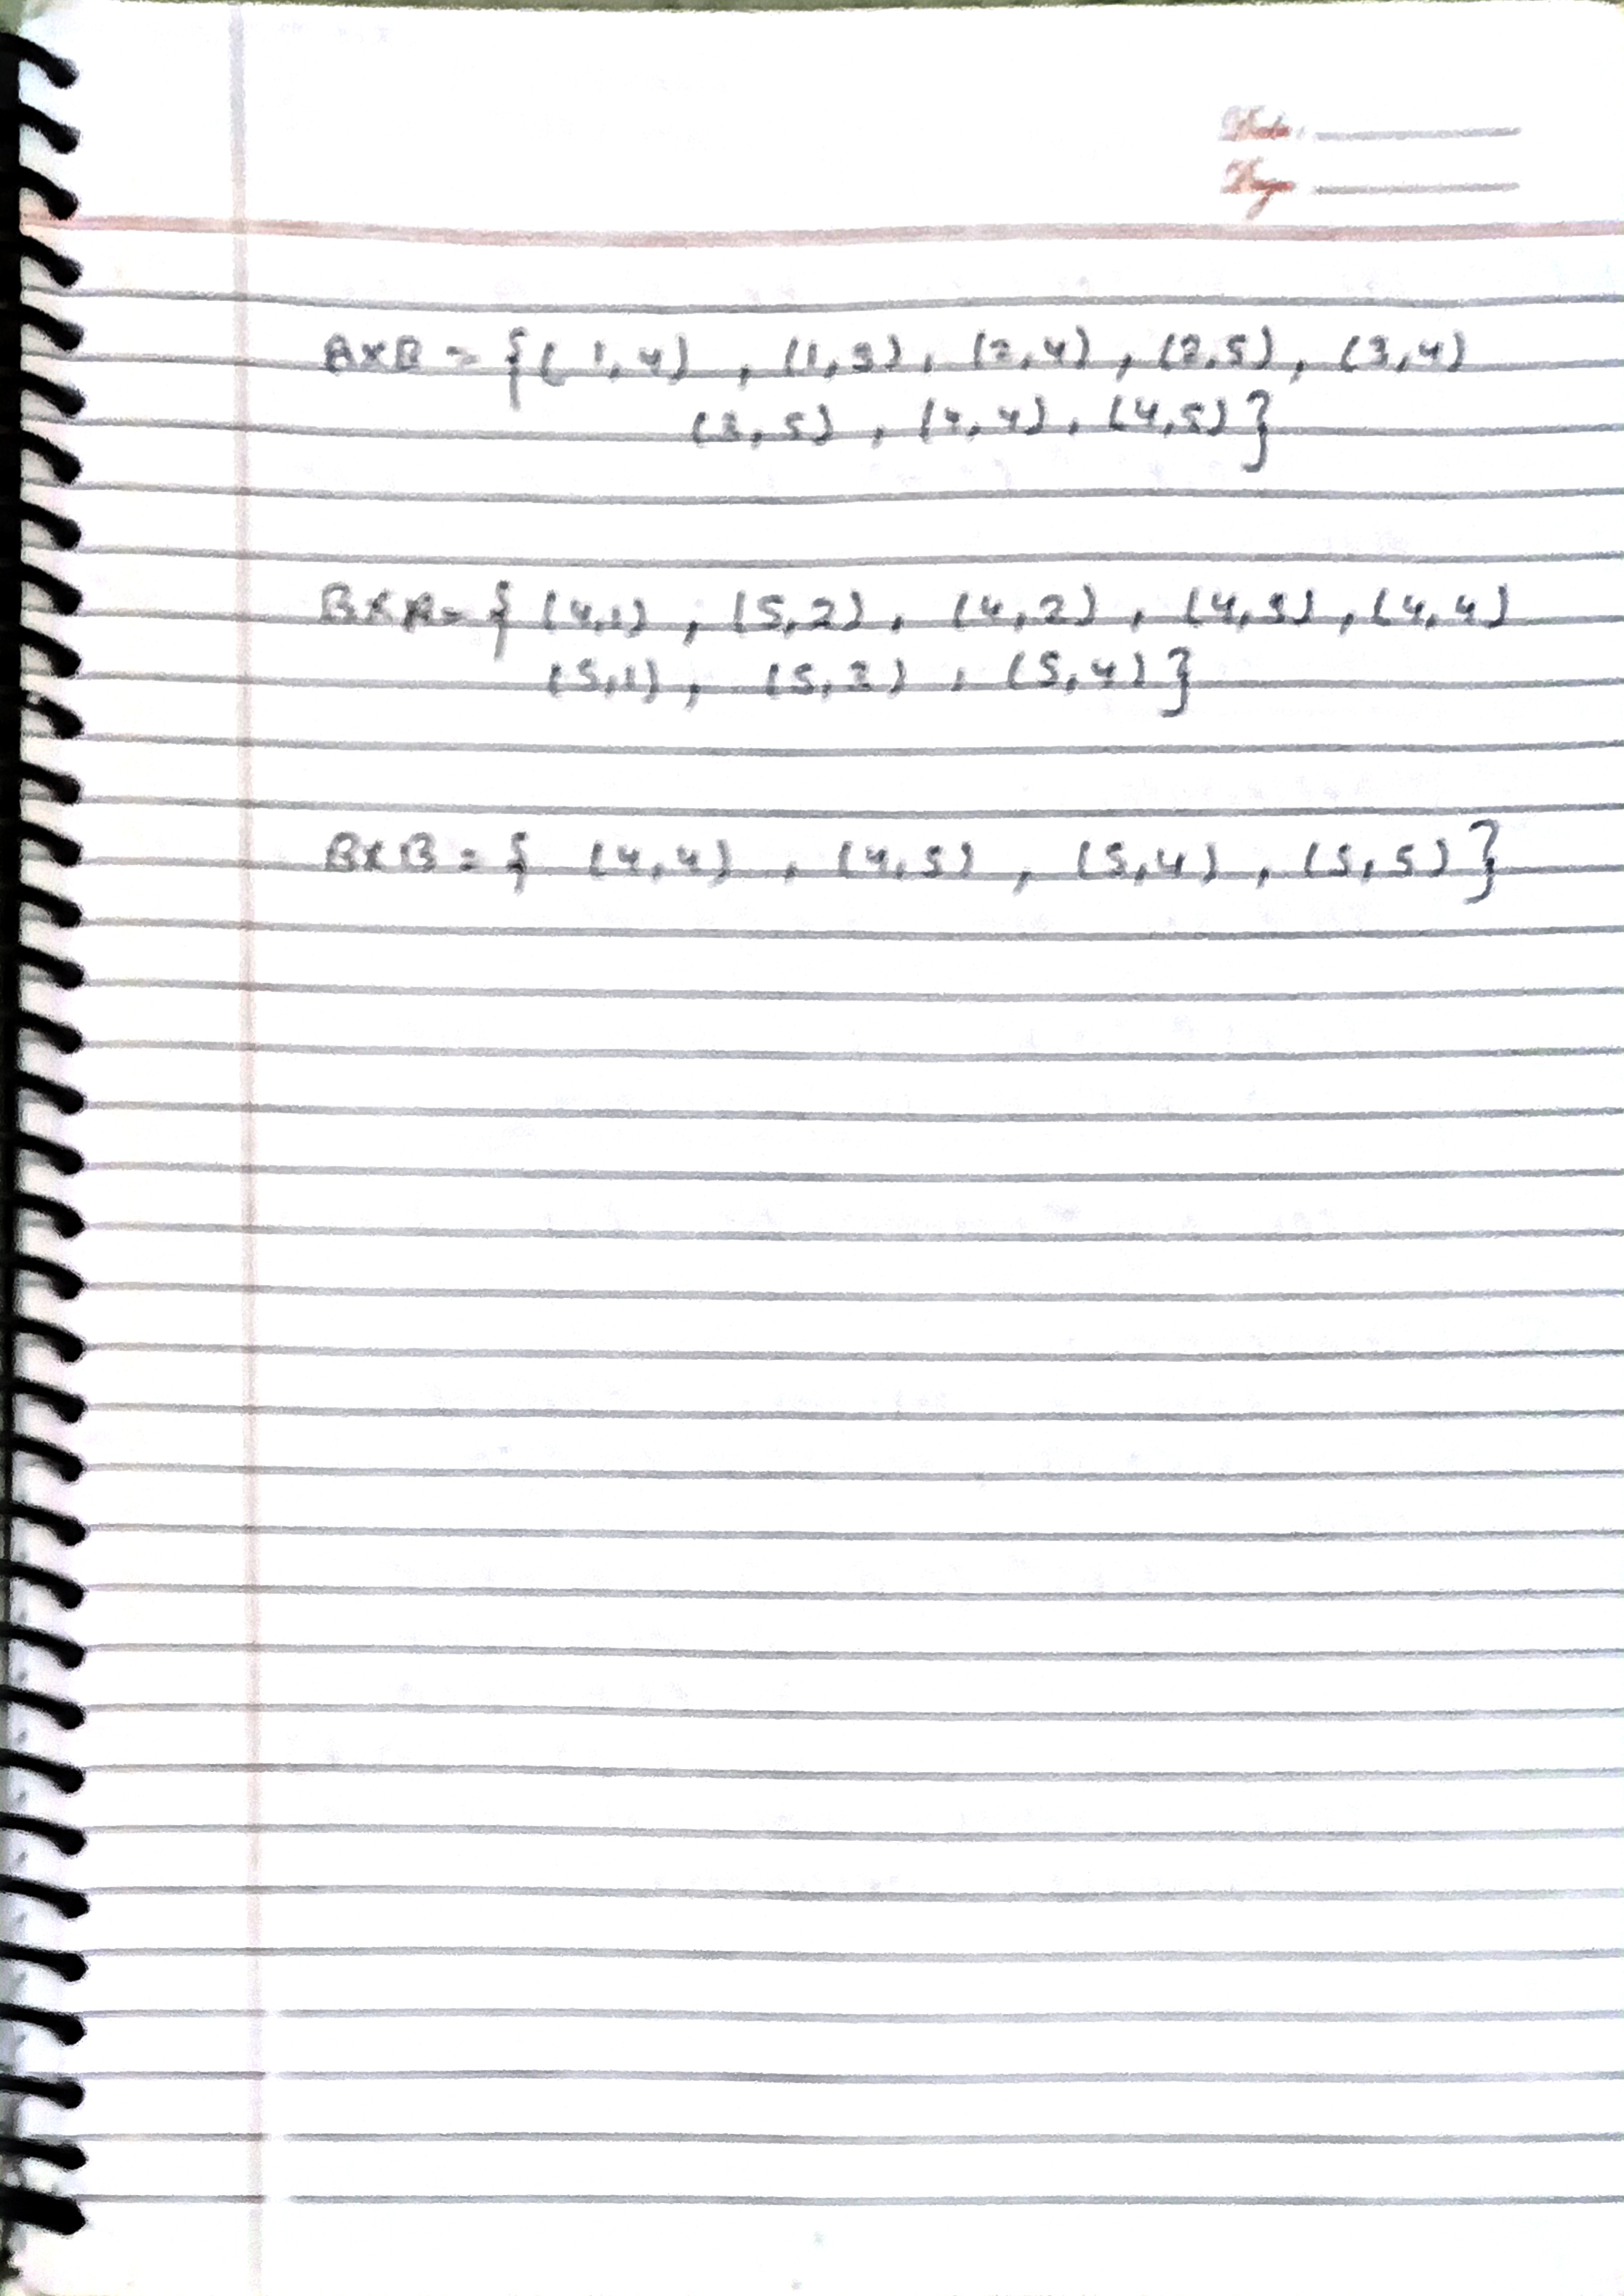 Date:
Page
A×B = {( 1,4) , (1,3), (2,4), (2,5), (3,4)
(3,5), (4,4), (4,5)}
B×A= { (4,1) , (5,2), (4,2), (4,3), (4,4)
(5,1), (5,2) , (5,4)}
B×B = { (4,4) , (4,5) , (5,4) , (5,5)}